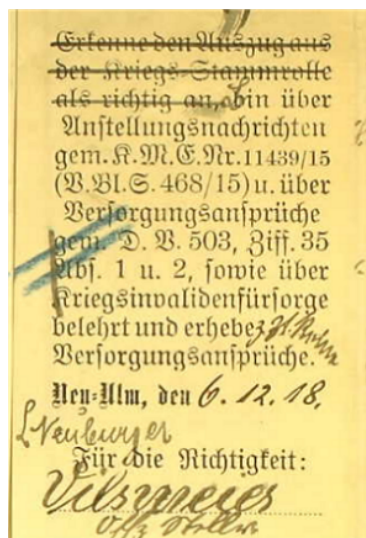 Erkenne den Auszug aus
der Kriegs-Stammrolle
als richtig an, bin über
Anstellungsnachrichten
gem. K.M.E.Nr. 11439/15
(V.Bl.S. 468/15) u. über
Versorgungsansprüche
gem. D. V. 503, Ziff. 35
Abs. 1 u. 2, sowie über
Kriegsinvalidenfürsorge
belehrt und erhebe z. Zt. keine
Versorgungsansprüche.
Neu-Ulm, den 6. 12. 18.
L Neuburger
Für die Richtigkeit:
Vilsmeier
Offz Stellv